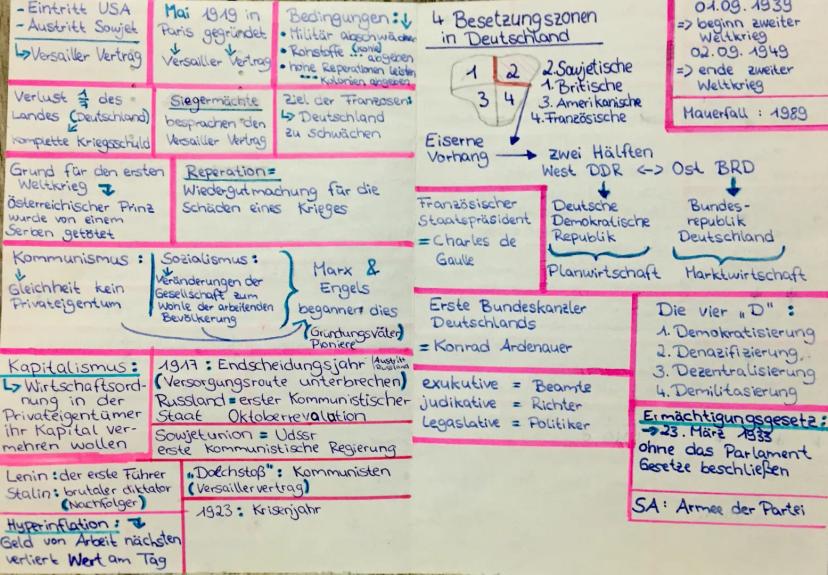 - Eintritt USA
- Austritt Sowjet
↳ Versailler Vertrag
Mai 1919 in
Paris gegründet
Versailler Vertrag
Bedingungen:
• Militär abschwächen
• Rohstoffe (Kohle) abgeben
• hohe Reperationen leisten
... Kolonien abgeben
Verlust 1/7 des
Landes (Deutschland)
komplette Kriegsschuld
Siegermächte
besprachen den
Versailler Vertrag
Ziel der Franzosen:
↳ Deutschland
zu schwächen
Grund für den ersten
Weltkrieg
österreichischer Prinz
wurde von einem
Serben getötet
Reperation=
Wiedergutmachung für die
Schäden eines Krieges
Kommunismus:
Gleichheit kein
Privateigentum
Sozialismus:
Veränderungen der
Gesellschaft zum
Wohle der arbeitenden
Bevölkerung
Marx &
Engels
begannen dies
(Gründungsväter)
Pioniere
Kapitalismus:
↳ Wirtschaftsord-
nung in der
Privateigentümer
ihr Kapital ver-
mehren wollen
1917: Endscheidungsjahr (Austritt Russland
(Versorgungsroute unterbrechen)
Russland = erster Kommunistischer
Staat Oktoberrevalation
Sowjetunion = Udssr
erste Kommunistische Regierung
Lenin: der erste Führer
Stalin: brutaler diktator
(Nachfolger)
"Dolchstoß": Kommunisten
(Versaillervertrag)
Hyperinflation:
Geld von Arbeit nächsten
verliert Wert am Tag
1923: Krisenjahr
4 Besetzungszonen
in Deutschland
1 2
3 4
2. Sowjetische
1. Britische
3. Amerikanische
4. Französische
Eiserne
Vorhang → zwei Hälften
West DDR <-> Ost BRD
Deutsche
Demokratische
Republik
Planwirtschaft
Bundes-
republik
Deutschland
Marktwirtschaft
01.09.1939
=> beginn zweiter
Weltkrieg
02.09.1949
=> ende zweiter
Weltkrieg
Mauerfall: 1989
Französischer
Staatspräsident
= Charles de
Gaulle
Erste Bundeskanzler
Deutschlands
= Konrad Ardenauer
exukutive = Beamte
judikative = Richter
Legaslative = Politiker
Die vier "D":
1. Demokratisierung
2. Denazifizierung
3. Dezentralisierung
4. Demilitasierung
Ermächtigungsgesetz:
→ 23. März 1933
ohne das Parlament
Gesetze beschließen
SA: Armee der Partei